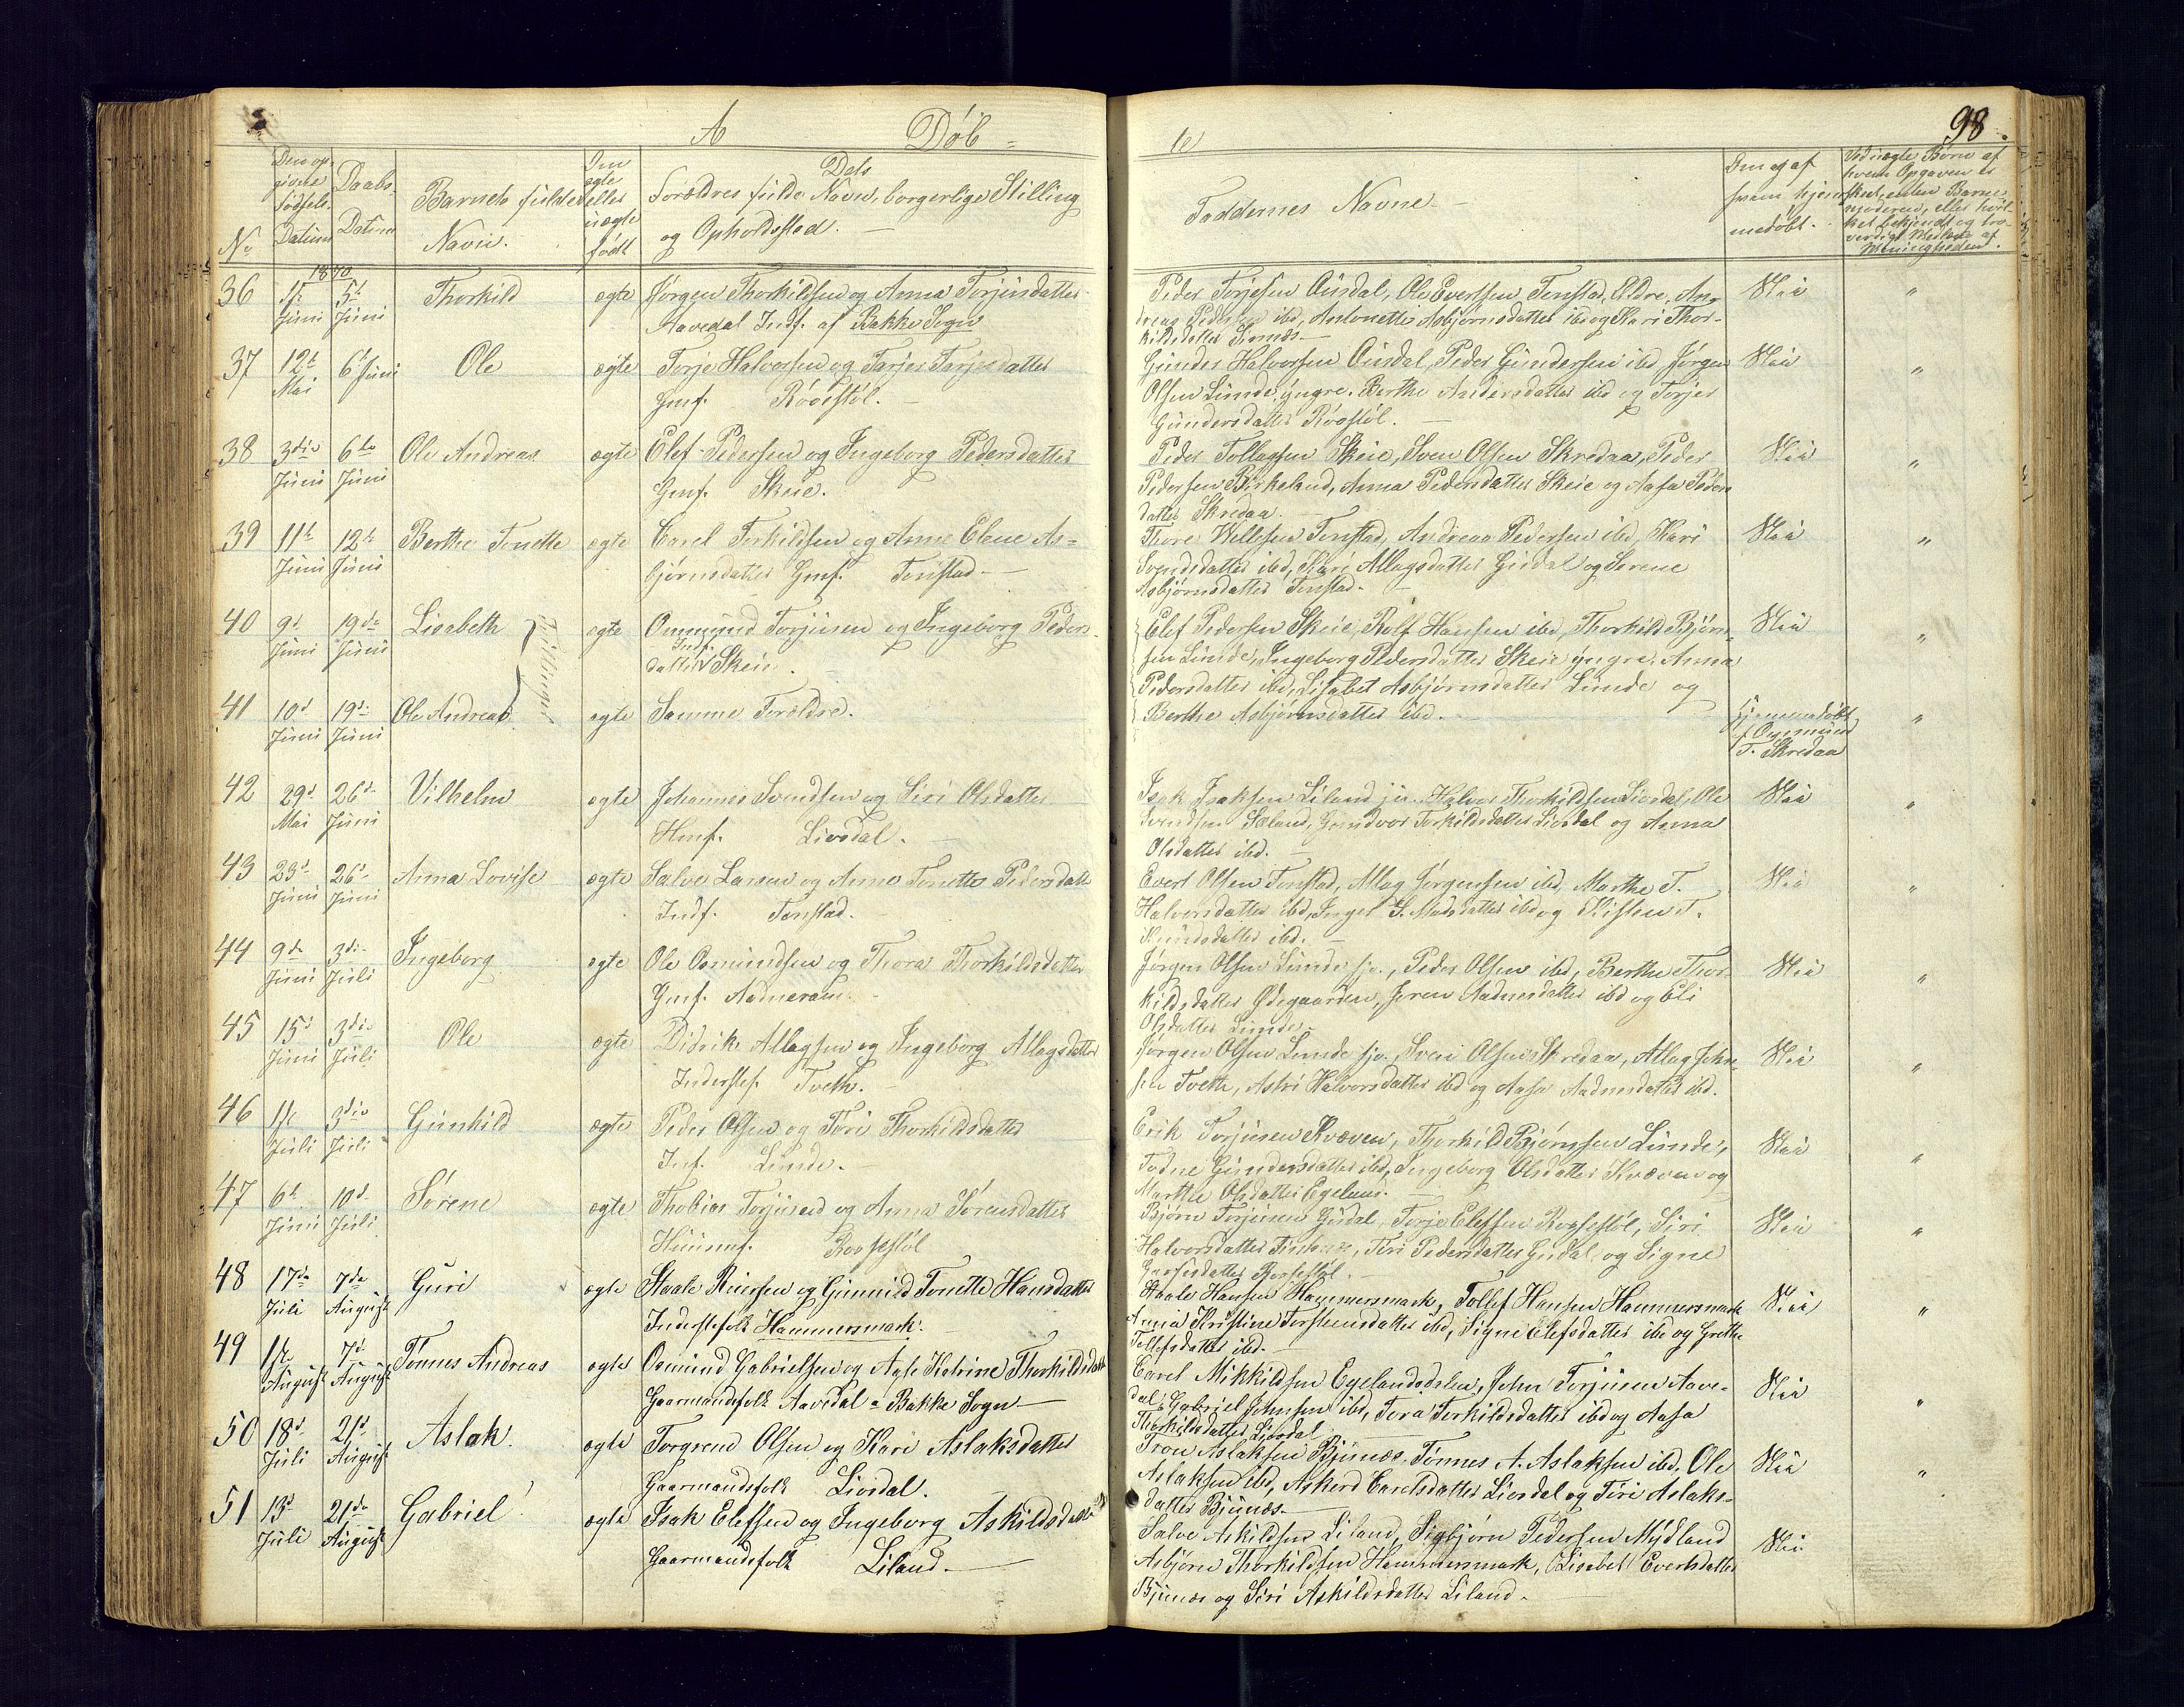 A Døb- te 98.
No Den opgivne Fødsels-Datum Daabs-Datum Barnets fulde Navn. Om ægte eller uægte født Dets Forældres fulde Navn, borgerlige Stilling og Opholdssted. Faddernes Navne Om og af hvem hjemmedøbt. Ved uægte Børn af hvem Opgaven er skeet, enten Barnemoderen, eller hvilket bekjendt og troværdigt Medlem af Menigheden.
1870
36 1ste Juni 5te Juni Thorkild ægte Jørgen Thorkildsen og Anna Torjusdatter
Aavedal Indf. af Bakke Sogn
Peder Torjesen Ousdal, Ole Evertsen Tonstad Ældre, An-
dreas Pedersen ibd, Antonette Asbjørnsdatter ibd og Kari Thor-
kildsdatter
Nei "
37 12te Mai 6te Juni Ole ægte Torje Halvorsen og Torjer Torjesdatter
Gmf. Rosstøl.
Gunder Halvorsen Ousdal, Peder Gundersen ibd Jørgen
Olsen Lunde yngre. Berthe Andersdatter ibd og Torjer
Gundersdatter Rosstøl.
Nei "
38 3die Juni 6te Juni Ole Andreas ægte Elef Pedersen og Ingeborg Pedersdatter
Gmf. Skeie.
Peder Tollagsen Skeie, Sven Olsen Skredaa, Peder
Pedersen Birkeland, Anna Pedersdatter Skeie og Aasa Peders
datter Skredaa.
Nei "
39 11te Juni 12te Juni Berthe Tonette ægte Carel Torkildsen og Anne Elene As=
bjørnsdatter Gmf. Tonstad.
Thore Willesen Tonstad, Andreas Pedersen ibd, Kari
Svendsdatter ibd, Kari Atlagsdatter Girdal og Serene
Asbjørnsdatter Tonstad.
Nei "
40 9de Juni 19de Juni Lisabeth Tvillinger ægte Ommund Torjusen og Ingeborg Peders-
datter Indf. Skeie.
Elef Pedersen Skeie, Rolf Hansen ibd, Thorkild Bjørn-
sen Lunde, Ingeborg Pedersdatter Skeie yngre, Anna
Pedersdatter ibd, Lisabet Asbjørnsdatter Lunde og
Nei "
41 10de Juni 19de Juni Ole Andreas ægte Samme Forældre.
Berthe Asbjørnsdatter ibd.
Hjemmedøbt
f. Ommund
T. Skredaa "
42 29de Mai 26de Juni Vilhelm ægte Johannes Svendsen og Siri Olsdatter
Hmf. Liosdal.
Isak Isaksen Liland jr. Halvor Thorkildsen Liosdal, Ole
Svendsen Gundvor Torkildsdatter Liosdal og Anna
Olsdatter ibd.
Nei "
43 23de Juni 26de Juni Anna Lovise ægte Salve Larsen og Anne Tonette Pedersdatt
Indf. Tonstad.
Evert Olsen Tonstad, Atlag Jørgensen ibd, Marthe T.
Halvorsdatter ibd, Inger S. Madsdatter ibd og Kisten T.
Knudsdatter ibd.
Nei "
44 9de Juni 3die Juli Ingeborg ægte Ole Osmundsen og Thora Thorkildsdatter
Gmf. Aadneram.
Jørgen Olsen Lunde sr., Peder Olsen ibd, Berthe Thor-
kildsdatter Ødegaarden, Joren Aadnesdatter ibd og Eli
Olsdatter Lunde.
Nei "
45 15de Juni 3die Juli Ole ægte Didrik Atlagsen og Ingeborg Atlagsdatter
Inderstf. Tveth.
Jørgen Olsen Lunde sr., Sven Olsen Skredaa, Atlag John-
sen Tveth, Astri Halvorsdatter ibd og Aasa Aadnesdatter ibd.
Nei "
46 1ste Juli 3die Juli Gunhild ægte Peder Olsen og Tori Thorkildsdatter
Inf. Lunde.
Erik Torjusen Kvæven, Thorkild Bjørnsen Lunde,
Todne Gundersdatter ibd, Ingeborg Olsdatter Kvæven og
Marthe Olsdatter Egeland.
Nei "
47 6te Juni 10de Juli Sørene ægte Thobias Torjusen og Anna Sørensdatter
Huusmf. Rossestøl
Bjørn Torjusen Gusdal, Torje Elefsen Rossestøl, Siri
Halvorsdatter Tiri Pedersdatter Gusdal og Signe
Rossestøl.
Nei "
48 17de Juli 7de August Guri ægte Staale Reiersen og Gunvild Tonette Hansdatter
Inderstefolk Hammersmark.
Staale Hansen Hammersmark, Tollef Hansen Hammersmark
Anna Kristine Torsteinsdatter ibd, Signe Elefsdatter ibd og Grethe
Tollefsdatter ibd.
Nei "
49 1ste August 7de August Tønnes Andreas ægte Osmund Gabrielsen og Aase Katrine Thorkildsdatt
Gaarmandsfolk Aavedal = Bakke Sogn
Carel Mikkildsen Egelandsdalen, John Torjusen Aave-
dal, Gabriel Johnsen ibd, Tora Torkildsdatter ibd og Aasa
Thorkildsdatter Liosdal
Nei "
50 18de Juli 21de August Aslak. ægte Torgrem Olsen og Kari Aslaksdatter
Gaarmandsfolk Liosdal.
Tron Aslaksen Bjunæs, Tønnes A. Aslaksen ibd, Ole
Aslaksen ibd, Askerd Carelsdatter Liosdal og Tiri Aslaks-
datter Bjunæs.
Nei "
51 13de Juli 21de August Gabriel ægte Isak Elefsen og Ingeborg Askildsdatter
Gaarmandsfolk Liland.
Salve Askildsen Liland, Sigbjørn Pedersen Mydland
Asbjørn Thorkildsen Hammersmark, Lisabet Evertsdatter
Bjunæs og Siri Askildsdatter Liland.
Nei